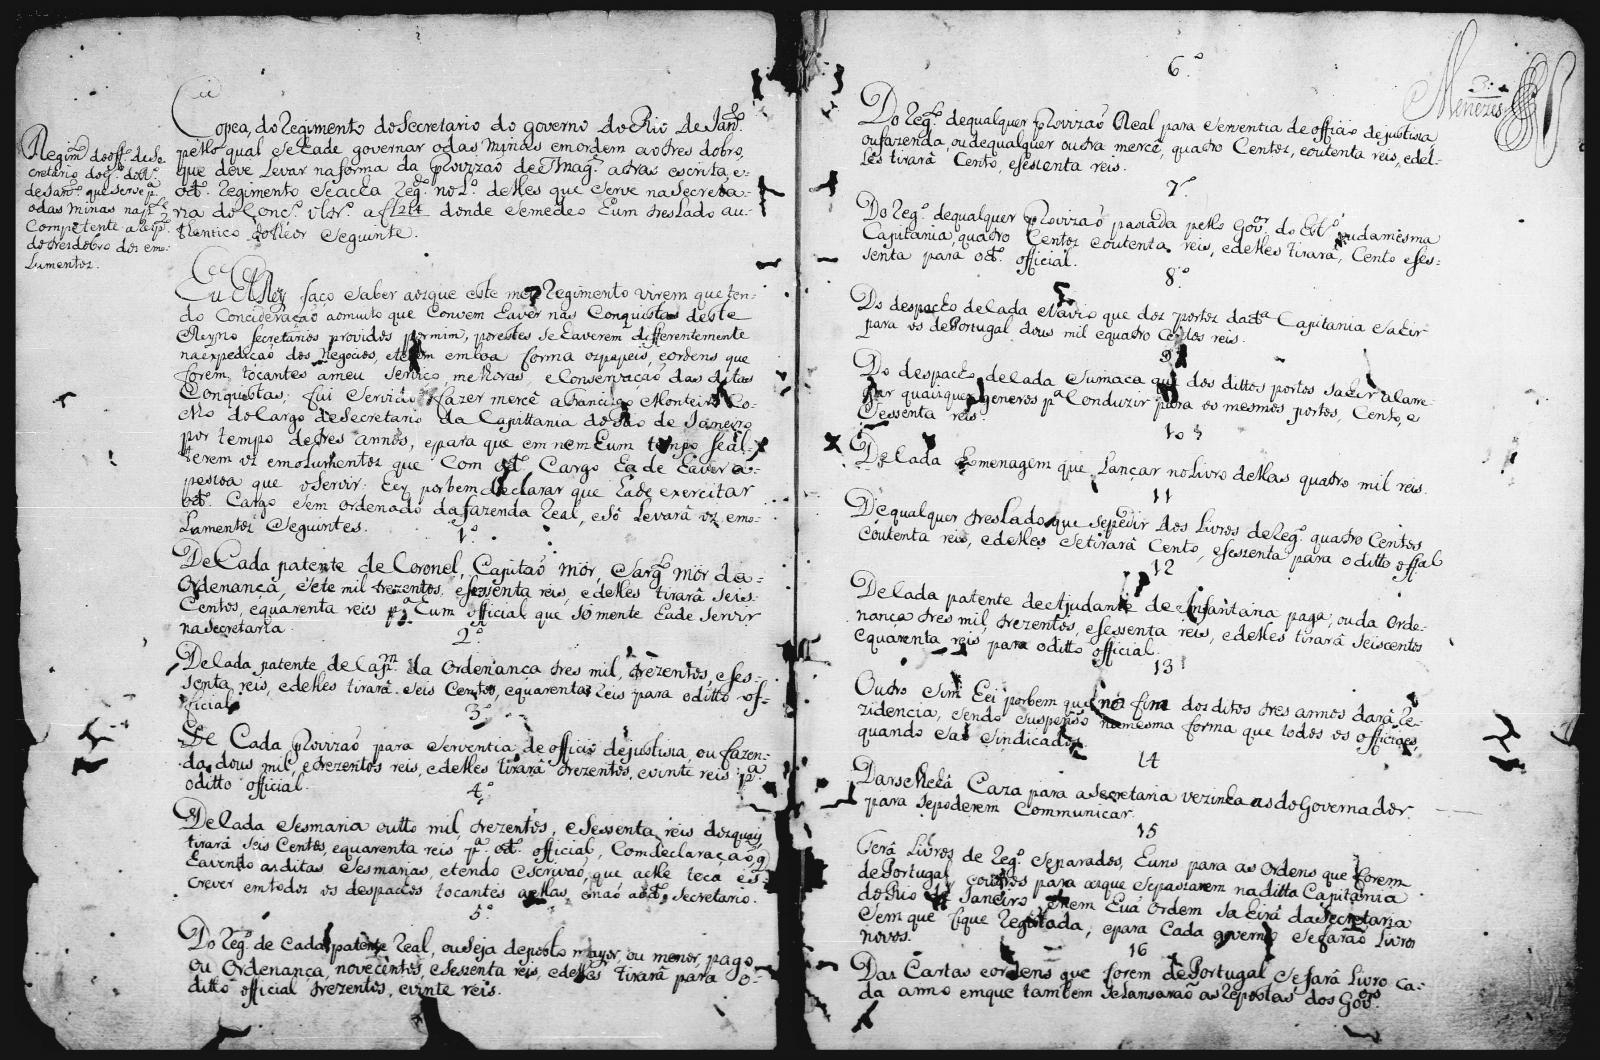 Regim.to do off.o de Se
cretario do g.o do R.o
de Jan.ro que serve p.a
as das Minas na p.te
Competente a resp.to
do tresdobro dos emo-
Lumentos.
Copea, do Regimento do Secretario do governo do Rio de Jan.ro
pello qual se hade governar o das Minas em ordem ao tres dobro,
que deve Levar na forma da Provizaõ de S Mag.e atras escrita, e
o d.o Regimento se acha Reg.do no L.o delles que serve na Secreta-
ria do Conc.o Vltr.o a f 214 donde se me deo hum tresLado au-
thentico do theor seguinte.
Eu ElRey faço saber aos que este meu Regimento virem que ten-
do Concideraçaõ ao muito que Convem haver nas Conquistas deste
Reyno secretarios providos por mim, por estes se haverem differentemente
na expediçaõ dos Negocios, e terem em boa forma os papeis, e ordens que
forem tocantes a meu serviço melhoras e Conservaçaõ das ditas
Conquistas; fui Servido fazer mercê a Francisco Monteiro Co-
elho do Cargo de Secretario da Capittania do Rio de Janeiro
por tempo de tres annos, e para que em nem hum tempo se al-
terem os emolumentos que Com o d.o Cargo ha de haver a
pessoa que o servir: Hey por bem declarar que hade exercitar
o d.o Cargo sem ordenado da fazenda Real, e só Levarâ os emo-
Lumentos Seguintes.
1.o
De Cada patente de Coronel, Capitaõ môr, Sarg.to môr da
Ordenança, sete mil trezentos, e sessenta reis, e delles tirarâ seis
Centos, e quarenta reis p.a hum official que sómente hade servir
na Secretaria.
2.o
De Cada patente de Cap.m da Ordenança tres mil, trezentos, e ses-
senta reis, e delles tirarâ seis Centos, e quarenta reis para o ditto of-
ficial.
3.o
De Cada Provizaõ para Serventia de officio de justissa, ou fazen-
da, dous mil, e trezentos reis, e delles tirarâ trezentos, e vinte reis p.a
o ditto official.
4.o
De Cada Sesmaria outto mil, trezentos, e sessenta reis dos quais
tirarâ seis Centos, e quarenta reis p.a o d.o official, Com declaraçaõ q
havendo as ditas Sesmarias, e tendo Escrivaõ, que a elle toca es-
crever em todos os despachos tocantes a ellas, e naõ ao d.o Secretario.
5.o
Do Reg.o de Cada patente Real, ou seja de posto mayor, ou menor, pago
ou Ordenança, novecentos, e sessenta reis, e delles tirarâ para o
ditto official trezentos, e vinte reis.
3
Menezes
6.o
Do Reg.o de qualquer Provizaõ Real para serventia de officio de justissa
ou fazenda, ou de qualquer outra mercê, quatro Centos, e outenta reis, e del-
les tirarâ Cento, e sessenta reis.
7.o
Do Reg.o de qualquer Provizaõ passada pello Gov.or do Est.o ou da mesma
Capitania, quatro Centos e outenta reis, e delles tirarâ, Cento e ses-
senta para o d.o official.
8.o
Do despacho de Cada Navio que dos portos da d.a Capitania sahir
para os de Portugal dous mil e quatro Centos reis.
9
Do despacho de Cada Sumaca que dos dittos portos sahir a Carre-
gar quaisquer generos p.a Conduzir para os mesmos portos, Cento, e
sessenta reis.
10
De Cada homenagem que Lançar no Livro dellas quatro mil reis.
11
De qualquer tresLado que se pedir dos Livros de Reg.o quatro Centos
e outenta reis, e delles se tirarâ Cento, e sessenta para o ditto offial
12
De Cada patente de Ajudante de Infantaria paga, ou da Orde-
nança tres mil, trezentos, e sessenta reis, e delles tirarâ seis centos
e quarenta reis para o ditto official.
13
Outro sim Hei por bem que no fim dos ditos tres annos darâ re-
zidencia, sendo suspenso na mesma forma que todos os officiaes,
quando saõ sindicados.
14
Darselhehâ Caza para a Secretaria vezinha as do Governador
para se poderem Communicar.
15
Terâ Livros de Reg.o separados, huns para as ordens que forem
de Portugal, e outros para as que se passarem na ditta Capitania
do Rio de Janeiro, e nem huã ordem sahirâ da Secretaria
sem que fique Registada, e para Cada governo se faraõ Livros
novos.
16
Das Cartas e ordens que forem de Portugal se farâ Livro ca-
da anno em que tambem se Lansaraõ as repostas dos Gov.res